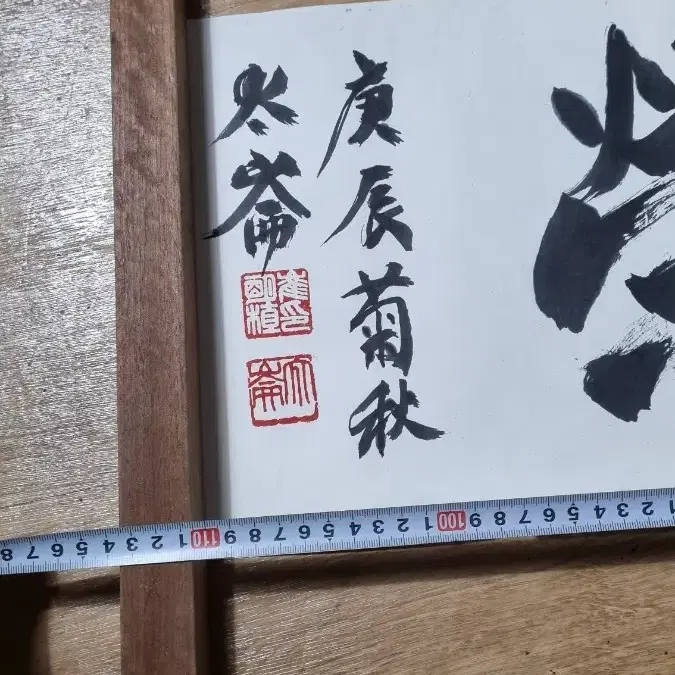 庚辰菊秋
崙
崔印明植
崙
3 4 5 6 7 8 9 100 1 2 3 4 5 6 7 8 9 110 1 2 3 4 5 6 7 8